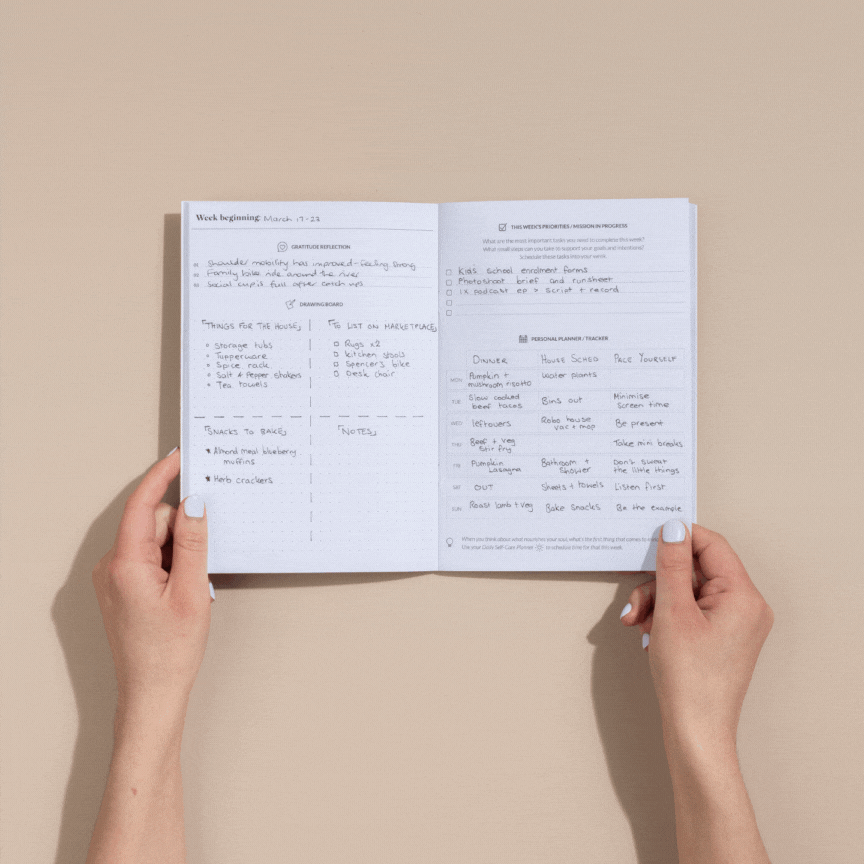 Week beginning: March 17-23
GRATITUDE REFLECTION
Shoulder mobility has improved - feeling strong
Family bike ride around the river
Social cup is full after catch ups
DRAWING BOARD
THINGS FOR THE HOUSE
Storage tubs
Tupperware
Spice rack
Salt & Pepper Shakers
Tea towels
TO LIST ON MARKETPLACE
Rugs x2
Kitchen stools
Spencer's bike
Desk chair
SNACKS TO BAKE
Almond meal blueberry
muffins
Herb crackers
NOTES
THIS WEEK'S PRIORITIES / MISSION IN PROGRESS
What are the most important tasks you need to complete this week?
What small steps can you take to support your goals and intentions?
Schedule those tasks into your week.
Kid's school enrolment forms
Photoshoot brief and runsheet
1x podcast ep > script + record
PERSONAL PLANNER / TRACKER
DINNER HOUSE SCHED PACE YOURSELF
MON Pumpkin + mushroom risotto Water plants
TUE Slow cooked beef tacos Bins out Minimise screen time
WED leftovers Robo house vac + mop Be present
THU Beef + veg stir fry Take mini breaks
FRI Pumpkin Lasagna Bathroom + Shower Don't sweat the little things
SAT OUT Sheets + towels Listen first
SUN Roast lamb + veg Bake snacks Be the example
When you think about what nourishes your soul, what's the first thing that comes to
Use your Daily Self-Care Planner to schedule time for that this week.